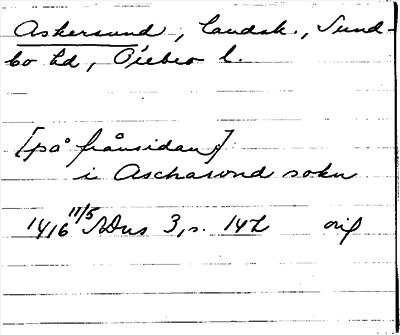 Askersund, landsk., Sund-
bo hd, Örebro l.
[på frånsidan]
i Ascharsund sokn
1416 11/5 SDns 3, s. 142 orig